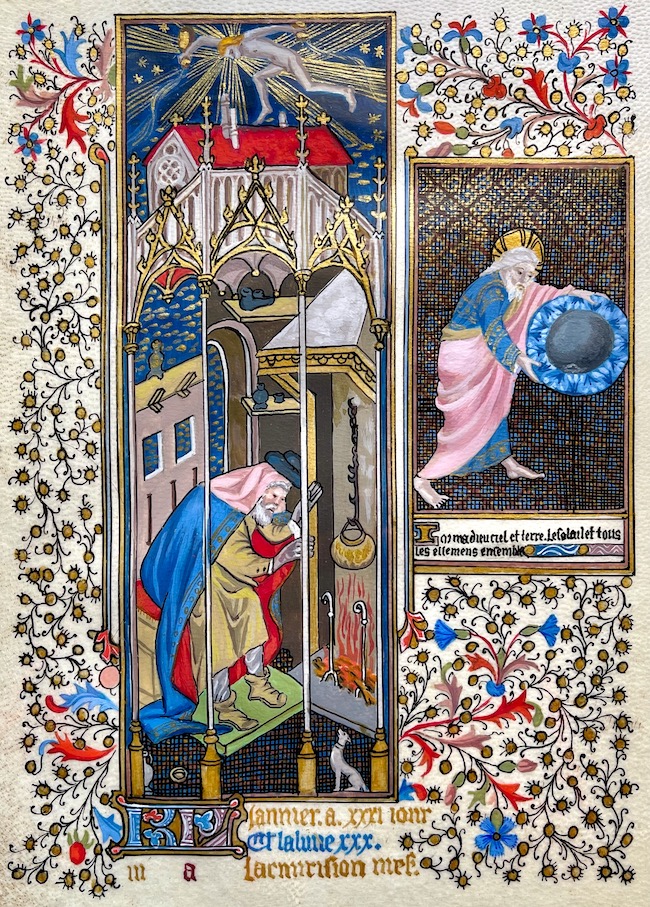 Forma dieu ciel et terre. Le soleil et tous
les ellemens ensemble
KL Iannier. a. xxxi iour
Et la lune xxx.
iii a